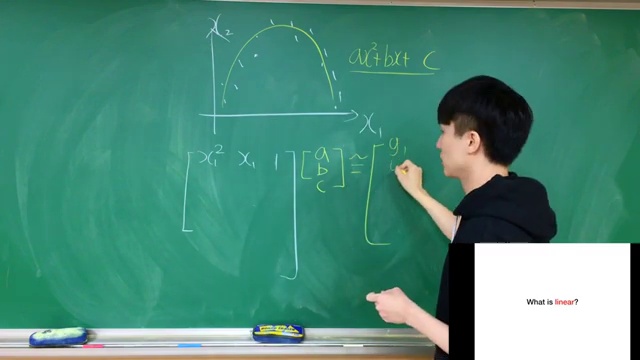 x₂
ax²+bx+ c
x₁
[ x₁² x₁ 1 ] [ a b c ] ≃ [ y₁
What is linear?